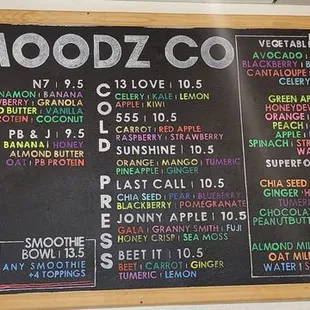 MOODZ CO
N7 | 9.5
CINNAMON | BANANA
GRANOLA
BUTTER | VANILLA
PROTEIN | COCONUT
PB & J | 9.5
BANANA | HONEY
ALMOND BUTTER
OAT | PB PROTEIN
SMOOTHIE
BOWL | 13.5
ANY SMOOTHIE
+4 TOPPINGS
COLD PRESS
13 LOVE | 10.5
CELERY | KALE | LEMON
APPLE | KIWI
555 | 10.5
CARROT | RED APPLE
RASPBERRY | STRAWBERRY
SUNSHINE | 10.5
ORANGE | MANGO | TUMERIC
PINEAPPLE | GINGER
LAST CALL | 10.5
CHIA SEED | PEAR | BLUEBERRY
BLACKBERRY | POMEGRANATE
JONNY APPLE | 10.5
GALA | GRANNY SMITH | FUJI
HONEY CRISP | SEA MOSS
BEET IT | 10.5
BEET | CARROT | GINGER
TUMERIC | LEMON
VEGETABL
AVOCADO
BLACKBERRY
CANTALOUPE
CELERY
GREEN APP
HONEYDE
ORANGE
PEACH
APPLE
SPINACH
SUPERFO
CHIA SEED
GINGER
TUMERIC
CHOCOLAT
PEANUTBUTT
ALMOND MIL
OAT MIL
WATER